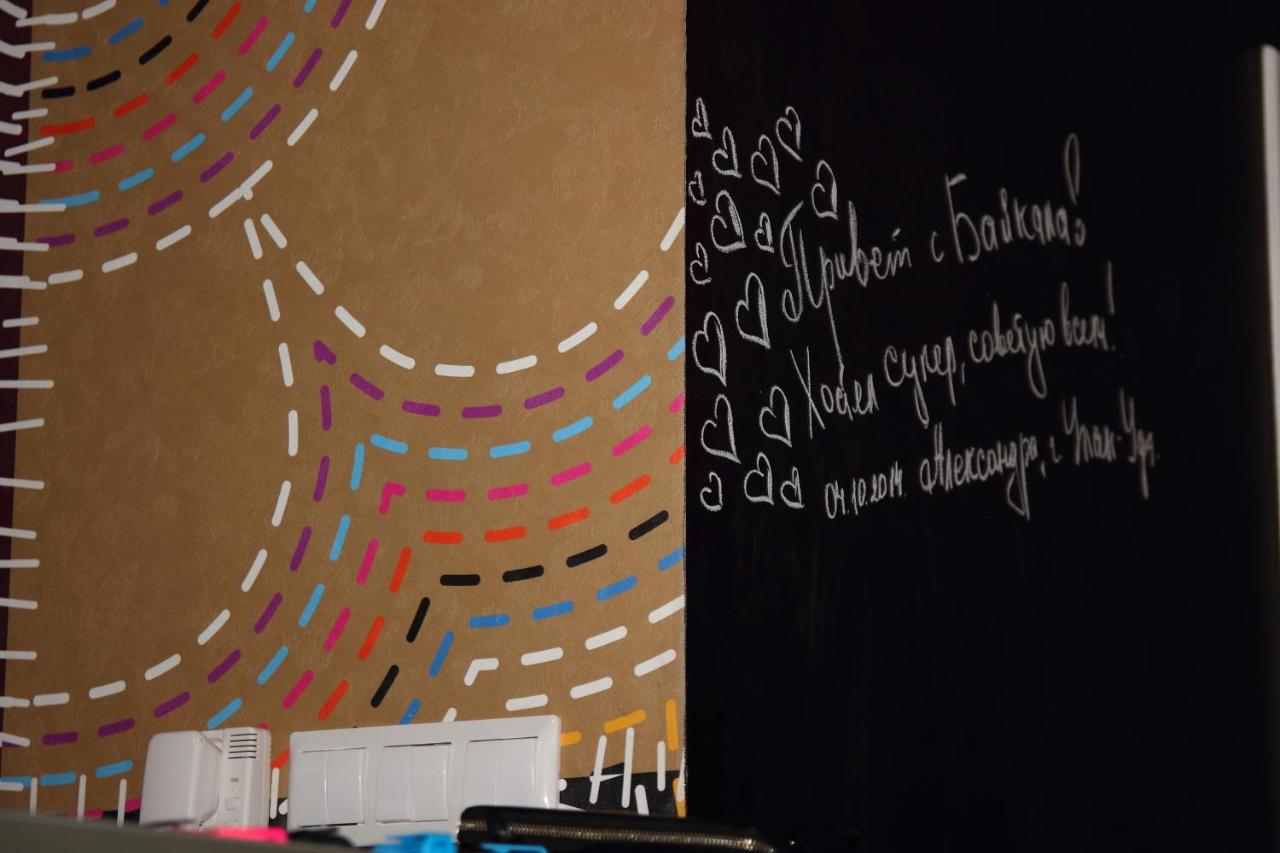 Привет с Байкала!
Хостел супер, советую всем!
04.10.2014. Александра, г. Улан-Удэ.